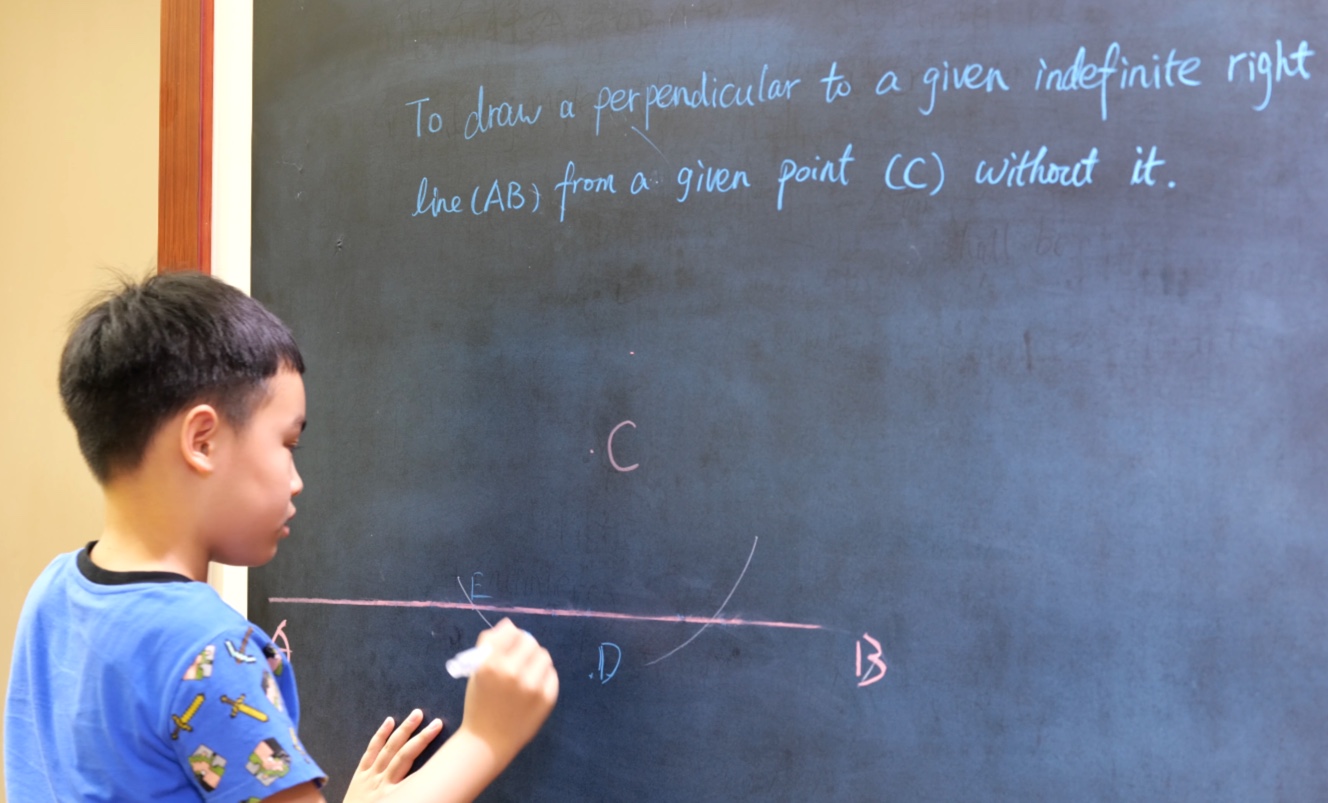 To draw a perpendicular to a given indefinite right
line (AB) from a given point (C) without it.
C
E
A
D
B